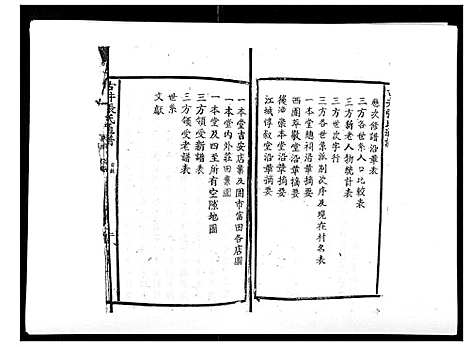 歷次修譜沿革表
三方各世系人口比較表
三方新老人物統計表
三方世次字行
三方各世系派別次序及現在村名表
一本堂總祠沿革摘要
西園萃歡堂沿革摘要
後淦崇本堂沿革摘要
江城惇敘堂沿革摘要
一本堂吉安店業及圖市富田各店圖
一本堂內外莊田業圖
一本堂及四至所有空隙地圖
三方領受新譜表
三方領受老譜表
世系
文獻